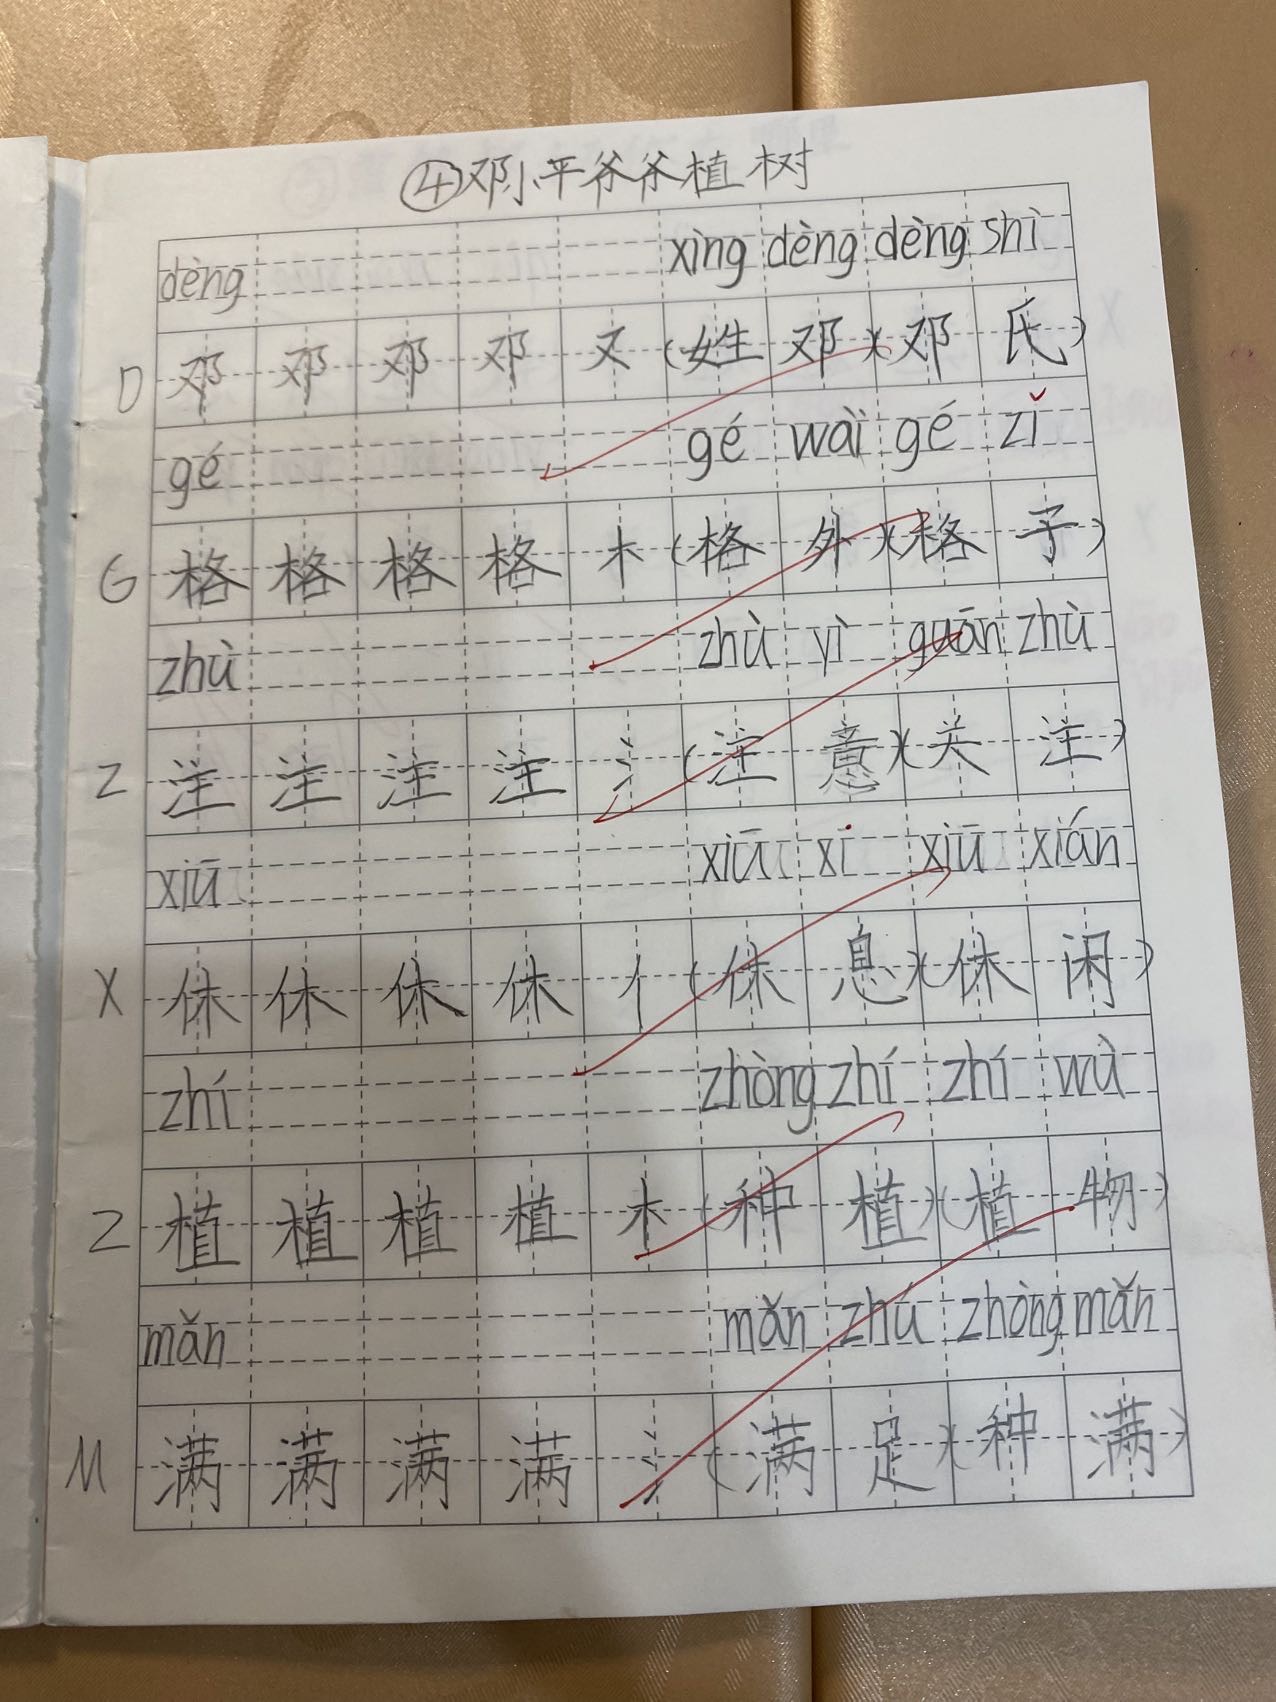 ④邓小平爷爷植树
dèng xìng dèng dèng shì
D 邓 邓 邓 邓 又 (姓 邓)(邓 氏)
gé gé wài gé zǐ
G 格 格 格 格 木 (格 外)(格 子)
zhù zhù yì guān zhù
Z 注 注 注 注 氵 (注 意)(关 注)
xiū xiū xi xiū xián
X 休 休 休 休 亻 (休 息)(休 闲)
zhí zhòng zhí zhí wù
Z 植 植 植 植 木 (种 植)(植 物)
mǎn mǎn zhú zhòng mǎn
M 满 满 满 满 氵 (满 足)(种 满)